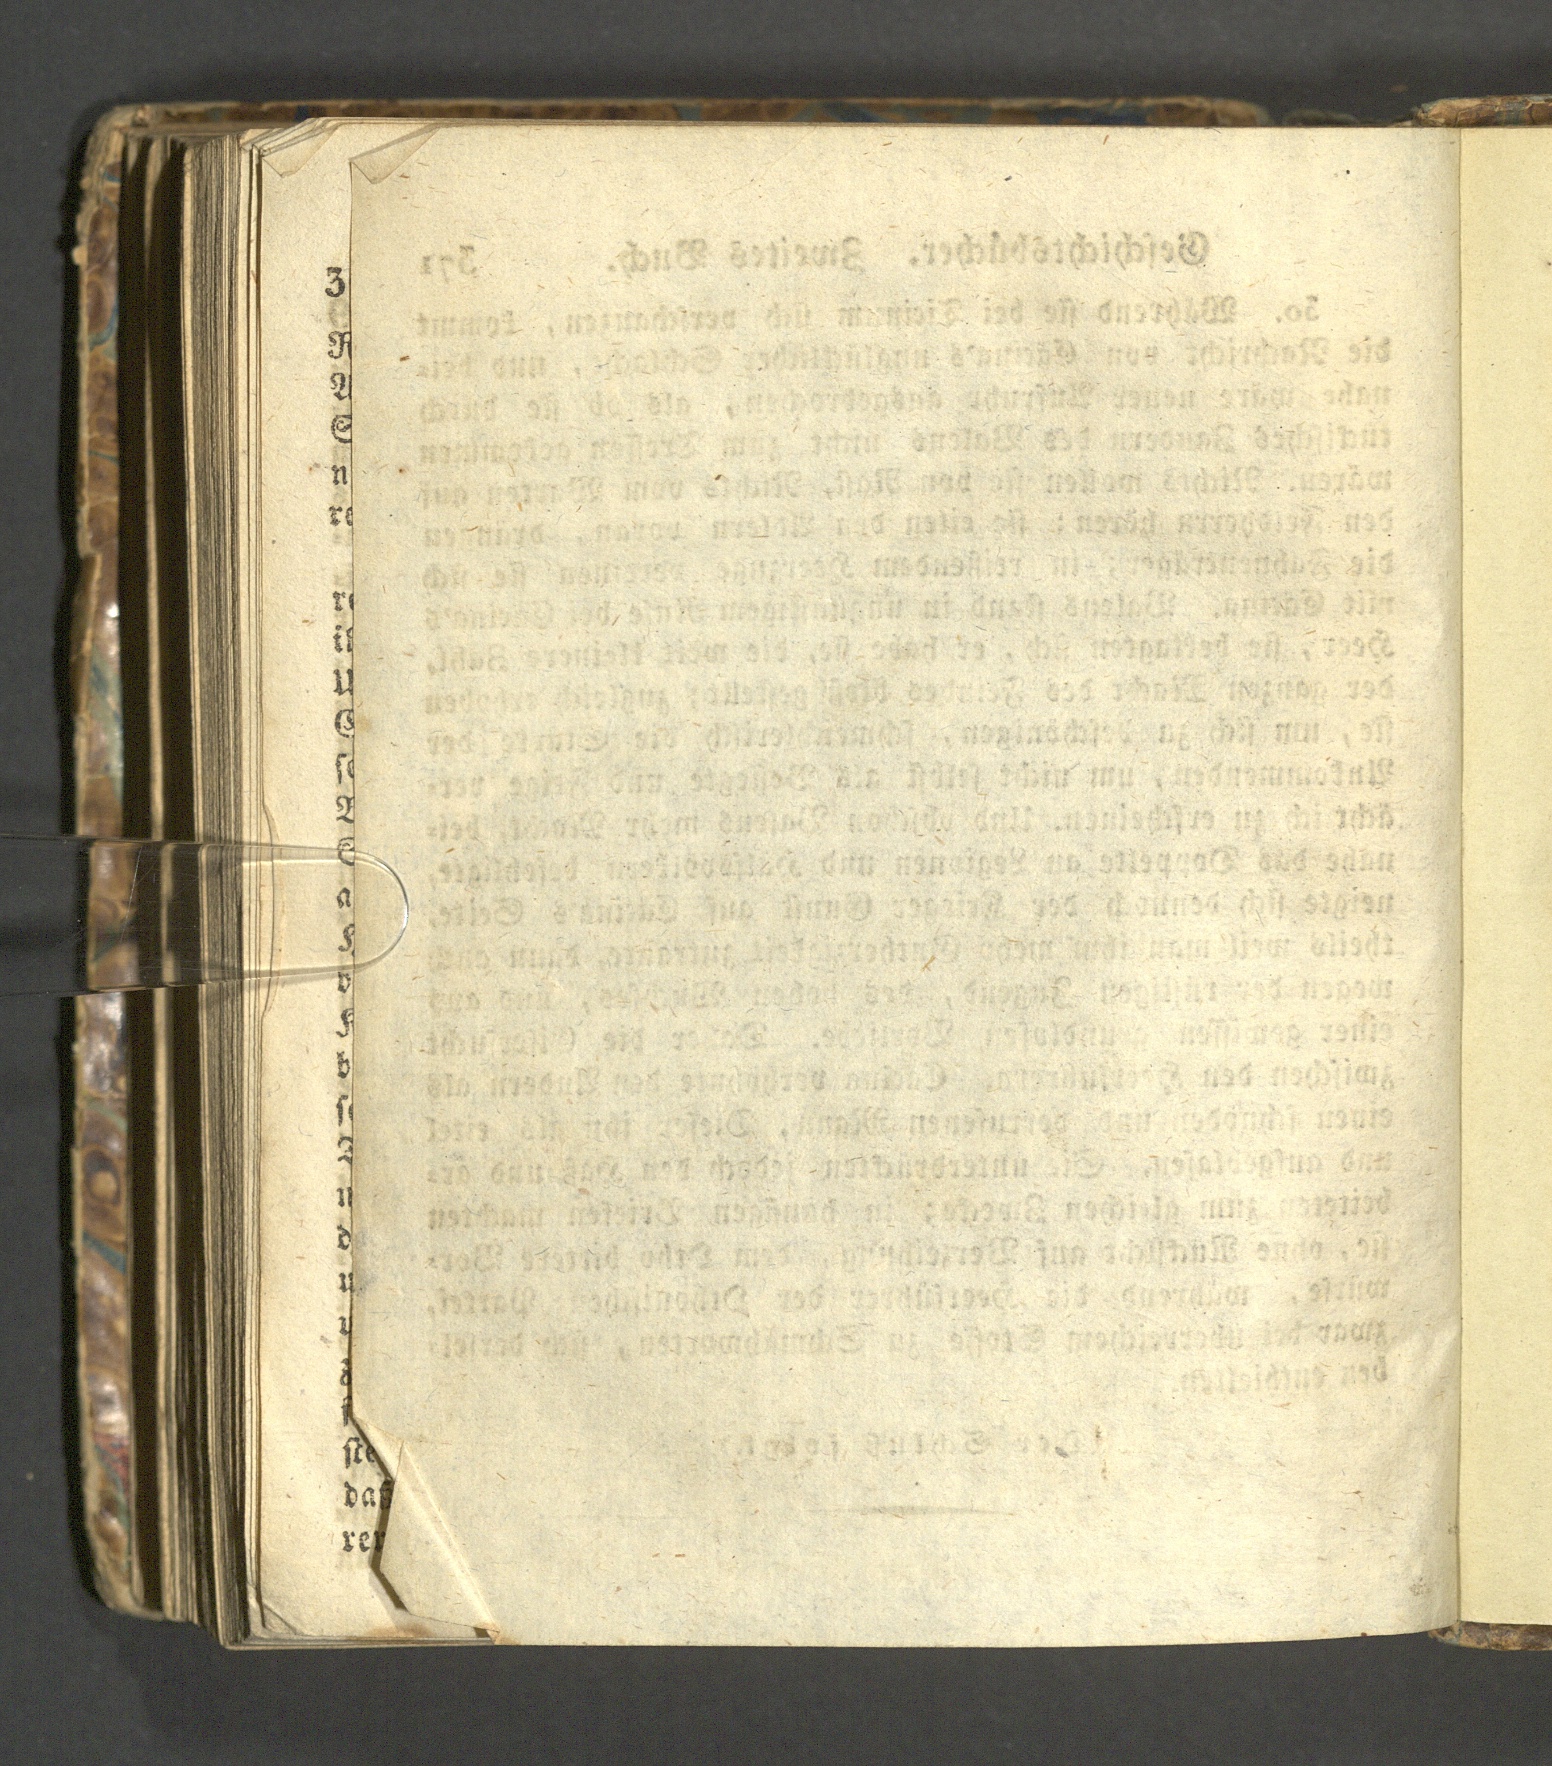 Geschichtsbücher. Zweites Buch. 371
30. Während sie bei Ticinum sich verschanzen, kommt
die Nachricht von Cäcina's unglücklicher Schlacht, und bei-
nahe wäre neuer Aufruhr ausgebrochen, als ob sie durch
tückisches Zaudern des Valens nicht zum Treffen gekommen
wären. Nichts wollen sie von Rast, Nichts vom Warten auf
den Feldherrn hören: sie eilen den Adlern voran, drängen
die Fahnenträger; in reißendem Heerzuge vereinen sie sich
mit Cäcina. Valens stand in ungünstigem Rufe bei Cäcina's
Heer; sie beklagten sich, er habe sie, die weit kleinere Zahl,
der ganzen Macht des Feindes bloß gestellt; zugleich erhoben
sie, um sich zu beschönigen, schmeichlerisch die Stärke der
Ankommenden, um nicht selbst als Besiegte und Feige ver-
ächtlich zu erscheinen. Und obschon Valens mehr Macht, bei-
nahe das Doppelte an Legionen und Hülfsvölkern befehligte,
neigte sich dennoch der Krieger Gunst auf Cäcina's Seite,
theils weil man ihm mehr Gutherzigkeit zutraute, dann auch
wegen der rüstigen Jugend, des hohen Wuchses, und aus
einer gewissen grundlosen Vorliebe. Daher die Eifersucht
zwischen den Heerführern. Cäcina verhöhnte den Andern als
einen schnöden und verrufenen Mann, Dieser ihn als eitel
und aufgeblasen. Sie unterdrückten jedoch den Haß und ar-
beiteten zum gleichen Zwecke; in häufigen Briefen machten
sie, ohne Rücksicht auf Verzeihung, dem Otho bittere Vor-
würfe, während die Heerführer der Othonischen Partei,
zwar bei überreichem Stoffe zu Schmähworten, sich dersel-
ben enthielten.
(Der Schluß folgt.)
3
n
re
re
a
b
n
d
u
v
ste
daß
rer